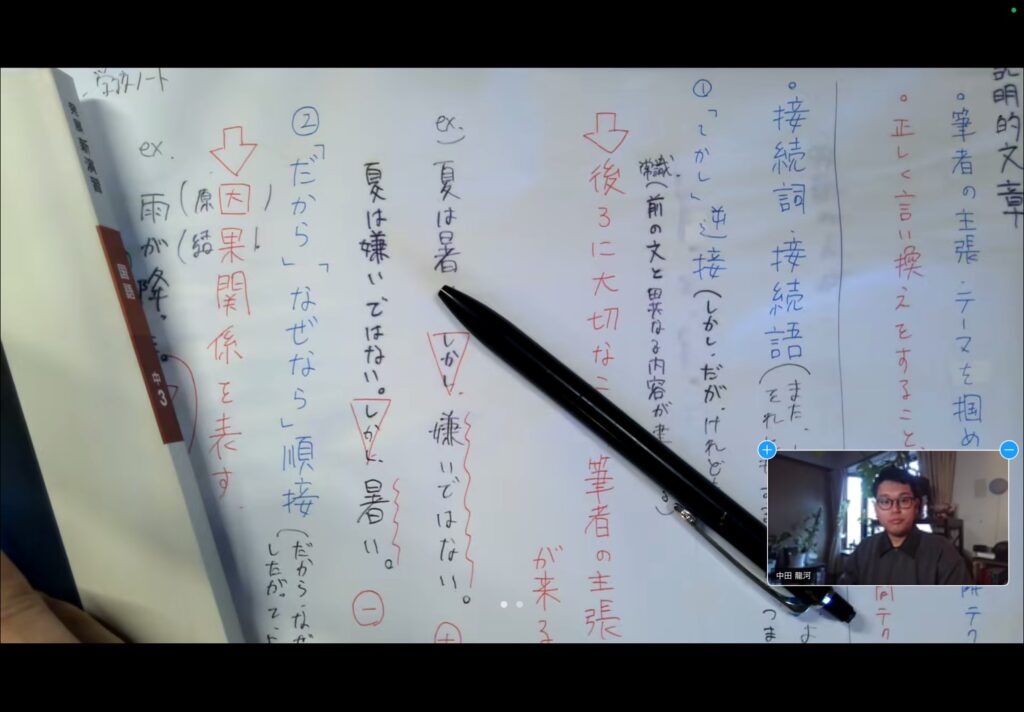 説明的文章
・筆者の主張・テーマを掴め
・正しく言い換えをすること
・接続詞・接続語(また、
それ
つま
①「しかし」逆接(しかし、だが、けれど
(前の文と異なる内容が
後ろに大切なこ
筆者の主張
が来る
ex) 夏は暑 しかし 嫌いではない。
夏は嫌いではない。しかし、暑い。
②「だから」「なぜなら」順接(だから、
したがって、
因果関係を表す
(原
(結
ex. 雨が降
学校ノート
新演習
国語
中3
中田 龍河